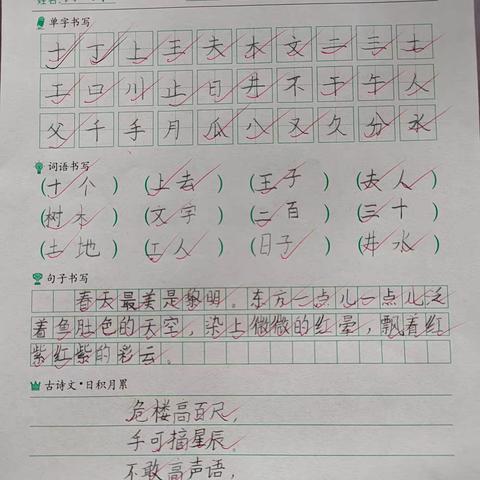 单字书写
十 丁 上 王 夫 木 文 二 三 土
工 口 川 止 日 井 不 于 午 人
父 千 手 月 瓜 八 又 久 分 水
词语书写
(十个) (上去) (王子) (夫人)
(树木) (文字) (二百) (三十)
(土地) (工人) (日子) (井水)
句子书写
春天最美是黎明。东方一点儿一点儿泛
着鱼肚色的天空，染上微微的红晕，飘着红
紫红紫的彩云。
古诗文·日积月累
危楼高百尺，
手可摘星辰。
不敢高声语，